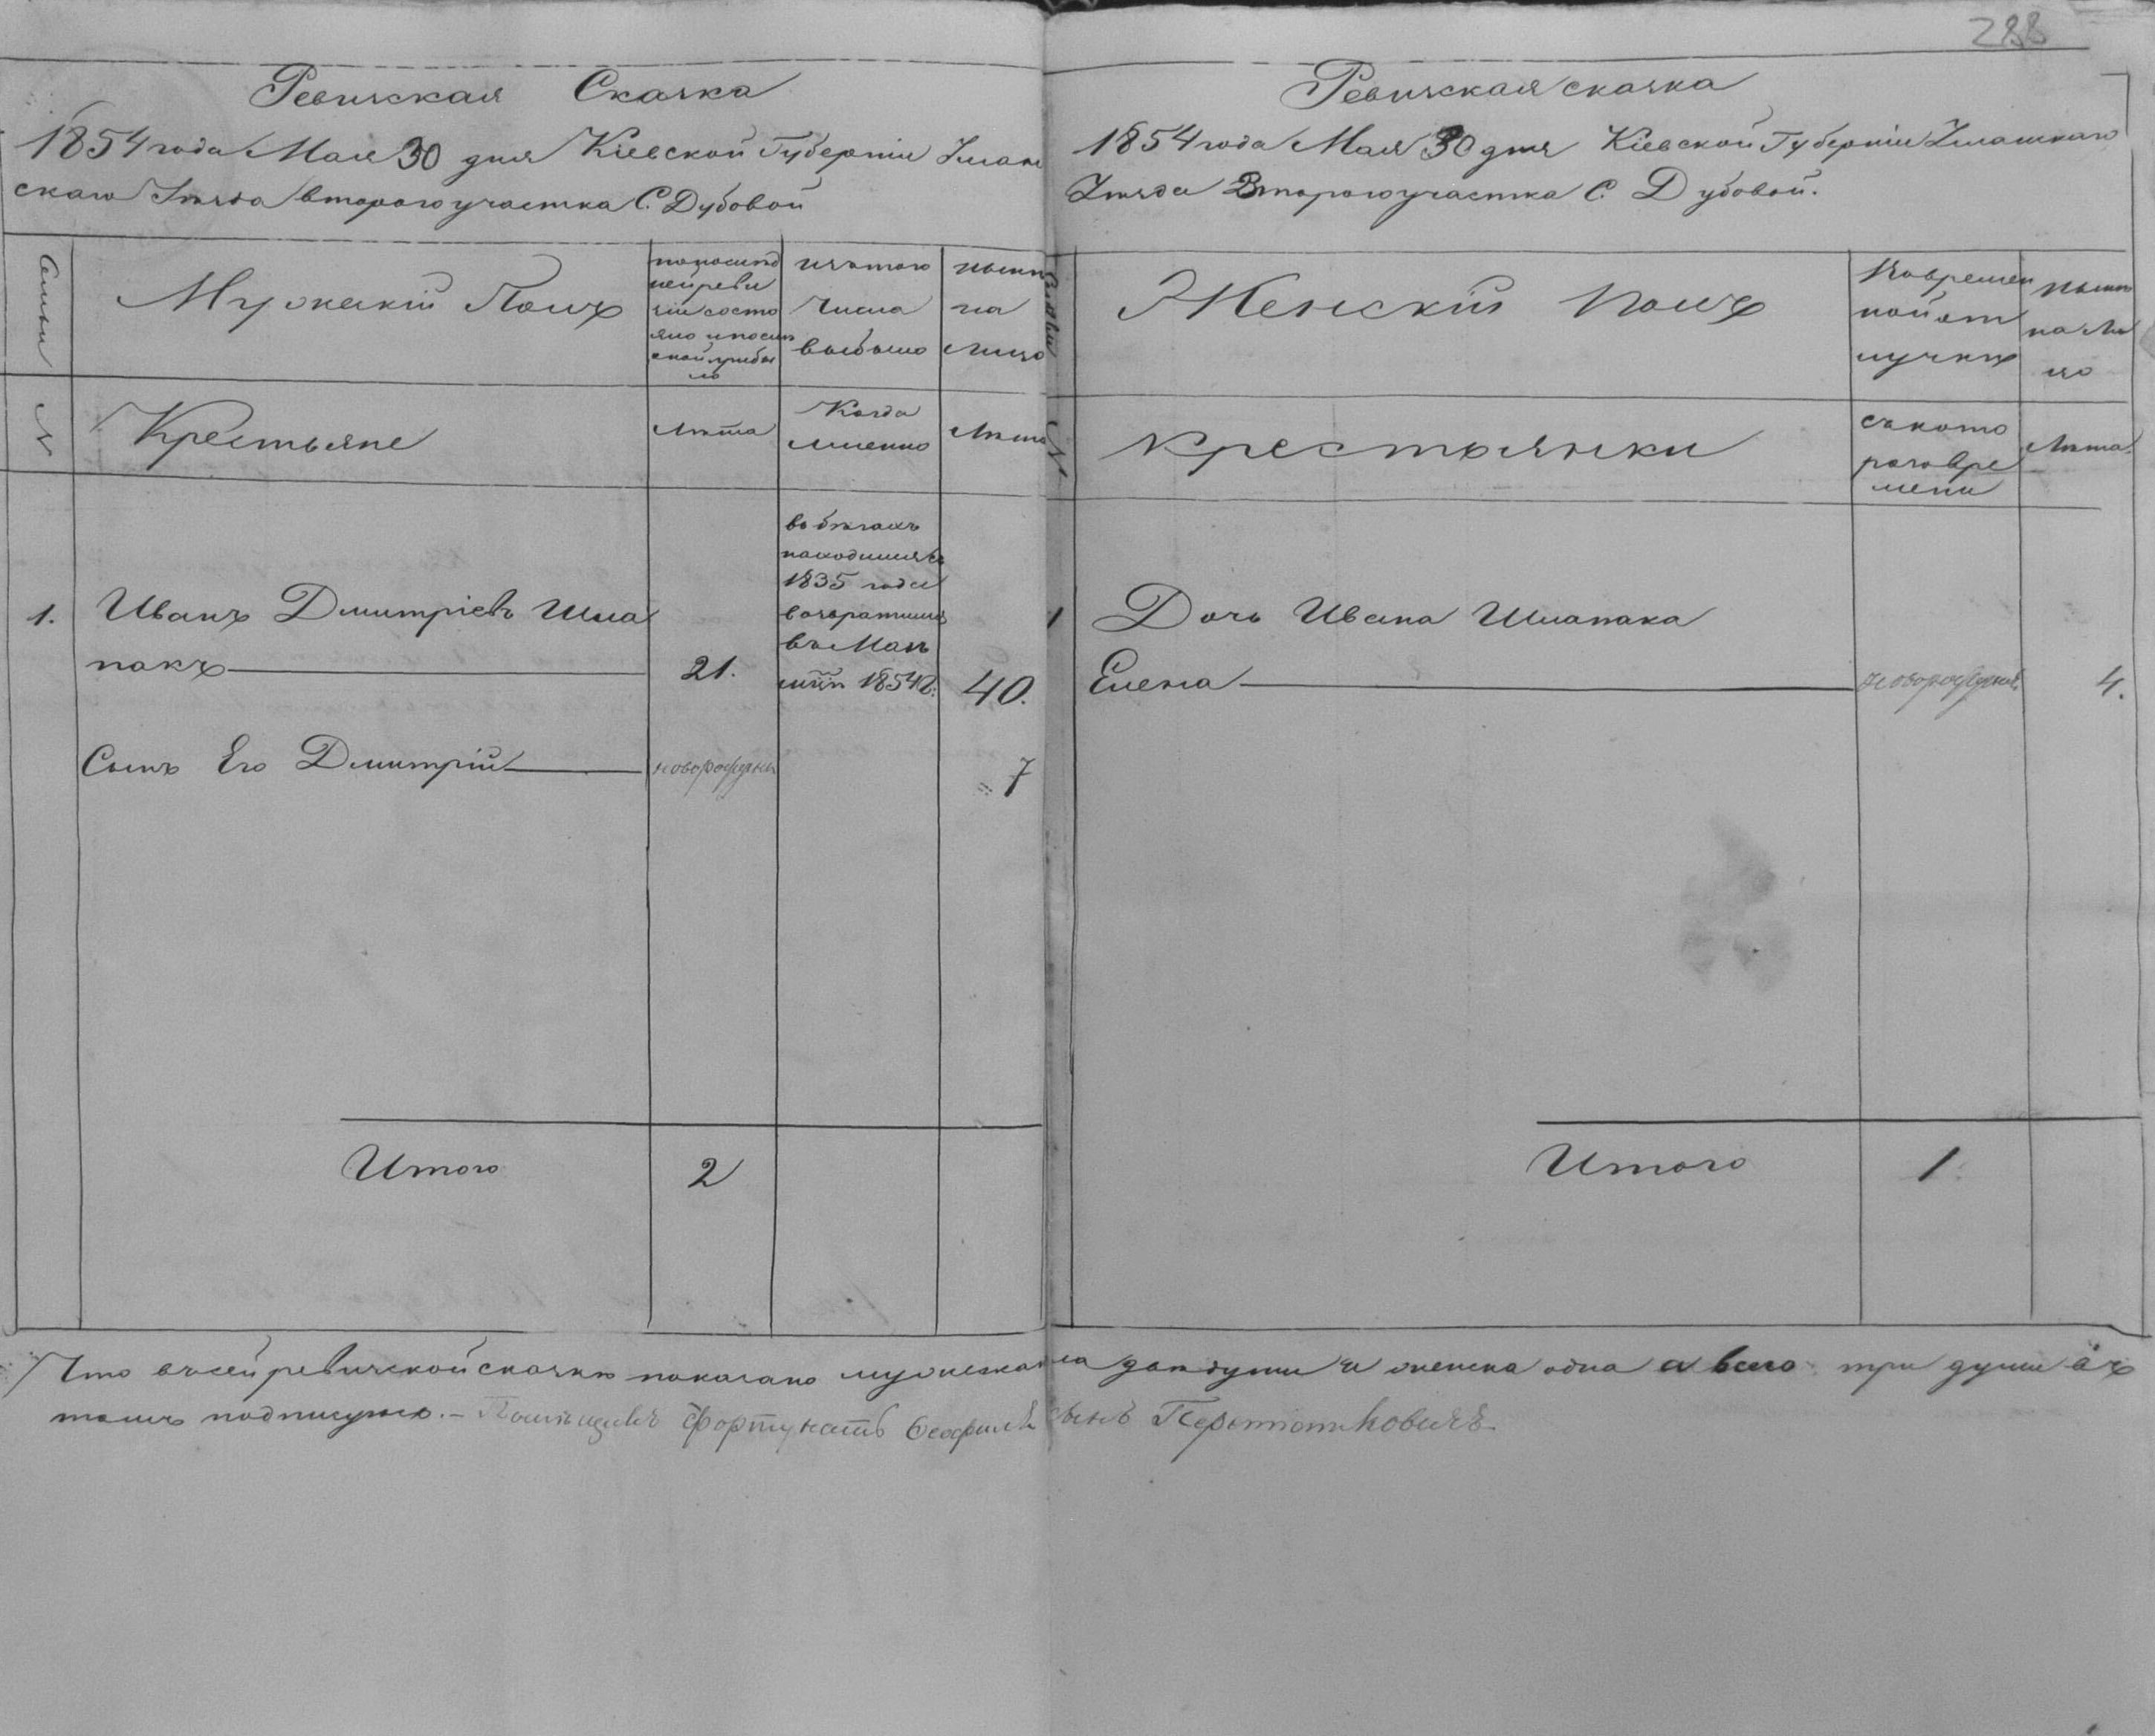 288
Ревизская Сказка
1854 года Мая 30 дня Кіевской Губерніи Уман
скаго Уѣзда второго участка С. Дубовой
Семьи
Мужескій Полъ
попослѣд
ней реви
зіи состо
яло и послѣ
оной прибы
ло
изъ того
числа
выбыло
нынѣ
на
лицо
№
Крестьяне
Лѣта
Когда
именно
Лѣта
1.
Иванъ Дмитріевъ Шла
пакъ
21.
въ бѣгахъ
находился съ
1835 года
возвратился
въ Маѣ
1854 г.
40.
Сынъ Его Дмитрій
новорожден
7
Итого
2
Ревизская сказка
1854 года Мая 30 дня Кіевской Губерніи Уманскаго
Уѣзда Второго участка С. Дубовой.
Семьи
Женскій Полъ
Вовремен
ной от
лучкѣ
нынѣ
на ли
цо
№
крестьянки
съ кото
раго вре
мени
Лѣта.
1
Дочь Ивана Шлапака
Елена
новорожден.
4.
Итого
1.
Что въ сей ревизской сказкѣ показано мужеска пола двѣ души и женска одна а всего три души въ
томъ подписуюсь. – Помѣщикъ Фортунатъ Феофил сынъ